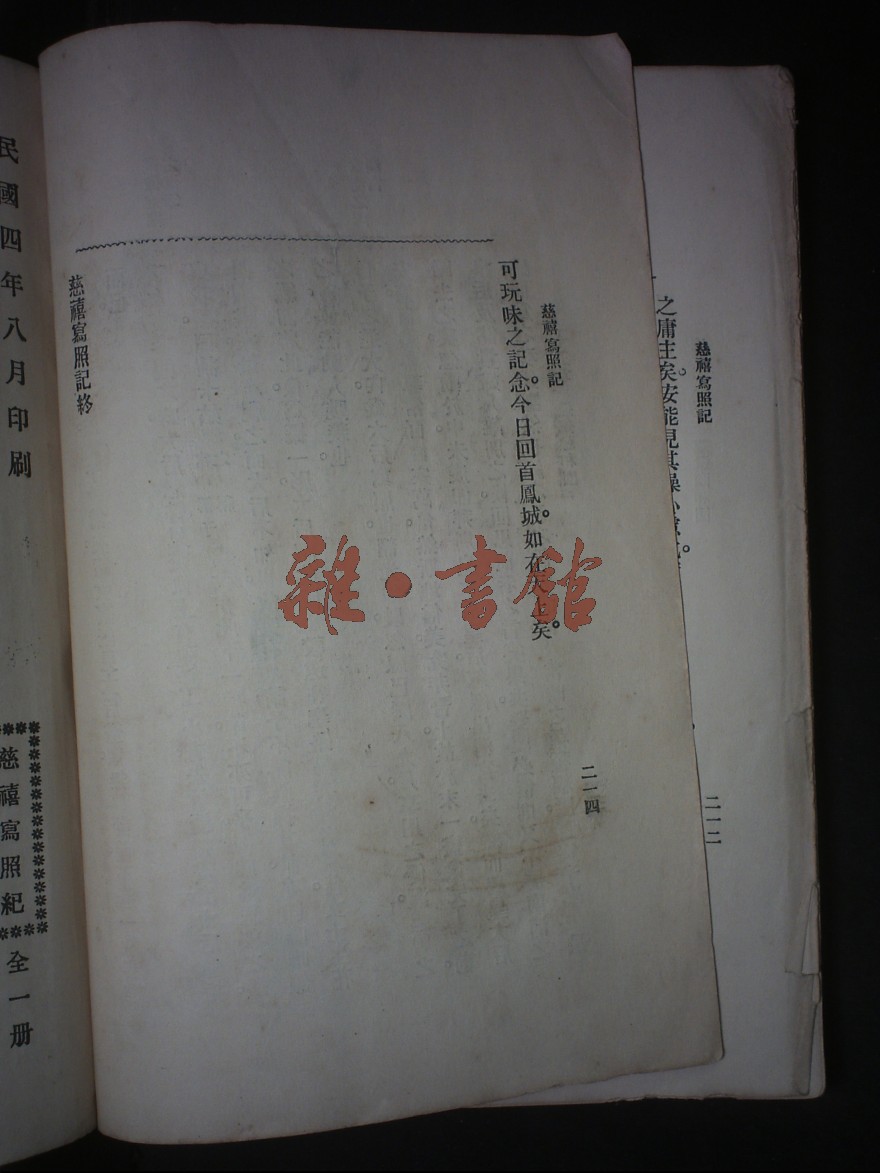 慈禧寫照記
之庸主矣。安能見其操心
二一二
慈禧寫照記
可玩味之記念。今日回首鳳城。如在天上矣。
二一四
慈禧寫照記終
民國四年八月印刷
慈禧寫照紀全一册
雜·書館